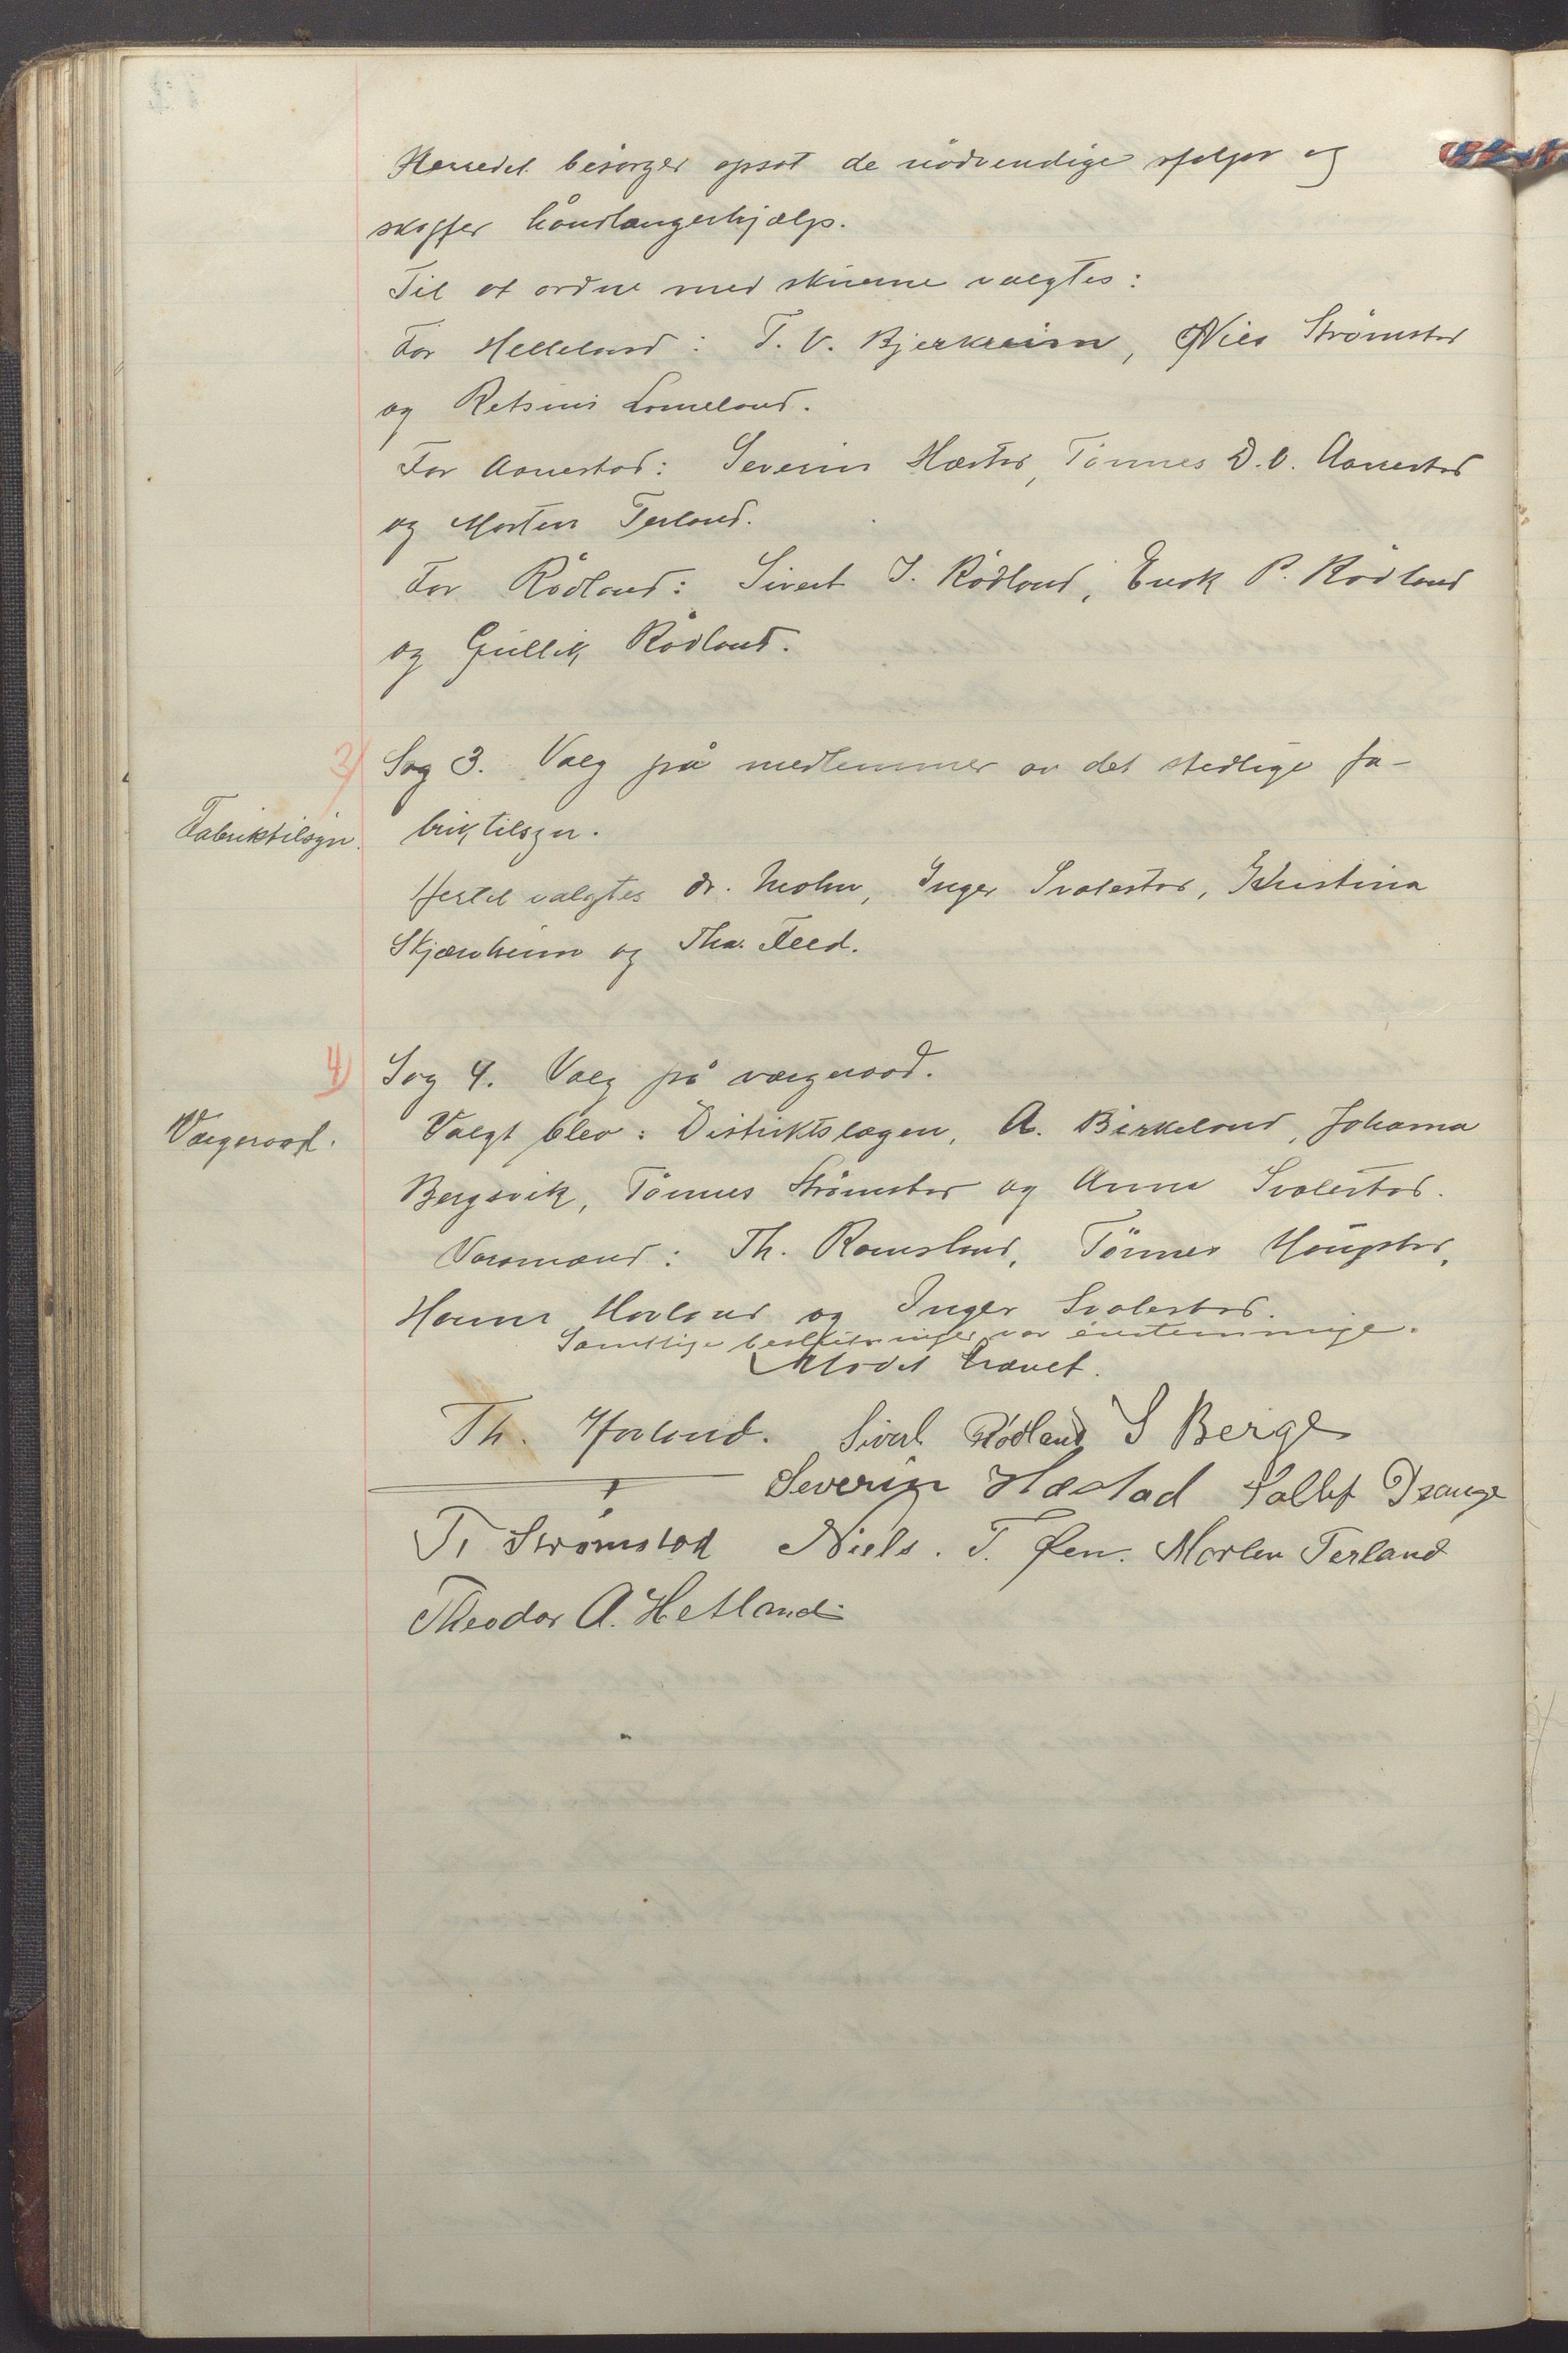 Herredet besörger opsat de nödvendige stolper og
skaffer håndlangerhjælp.
Til at ordne med skuerne valgtes:
For Helleland: T. V. Bjerkreim, Nils Strömstad
og Retsius Lomeland.
For Aarrestad: Severin Hæstad, Tönnes D. V. Aarrestad
og Morten Terland.
For Rödland: Sivert I. Rödland, Enok P. Rödland
og Gullik Rödland.
3) Sag 3. Valg på medlemmer av det stedlige fa-
Fabriktilsyn. briktilsyn.
Hertil valgtes dr. Mohn, Inger Svalestad, Kristina
Skjæveheim og Tha. Feed.
4) Sag 4. Valg på vergeraad.
Vergeraad. Valgt blev: Distriktslægen, A. Birkeland, Johanna
Bergsvik, Tönnes Strömstad og Anna Svalestad.
Varamænd: Th. Ramsland, Tönnes Haugstad,
Hanna Hovland og Inger Svalestad.
Samtlige beslutninger var enstemmige.
Mödet hævet.
Th. Hovland. Sivert Rødland S Berge
Severin Hæstad Tallef Drange
T. Strömstad Niels. T. Øen. Morten Terland
Theodor A. Hetland